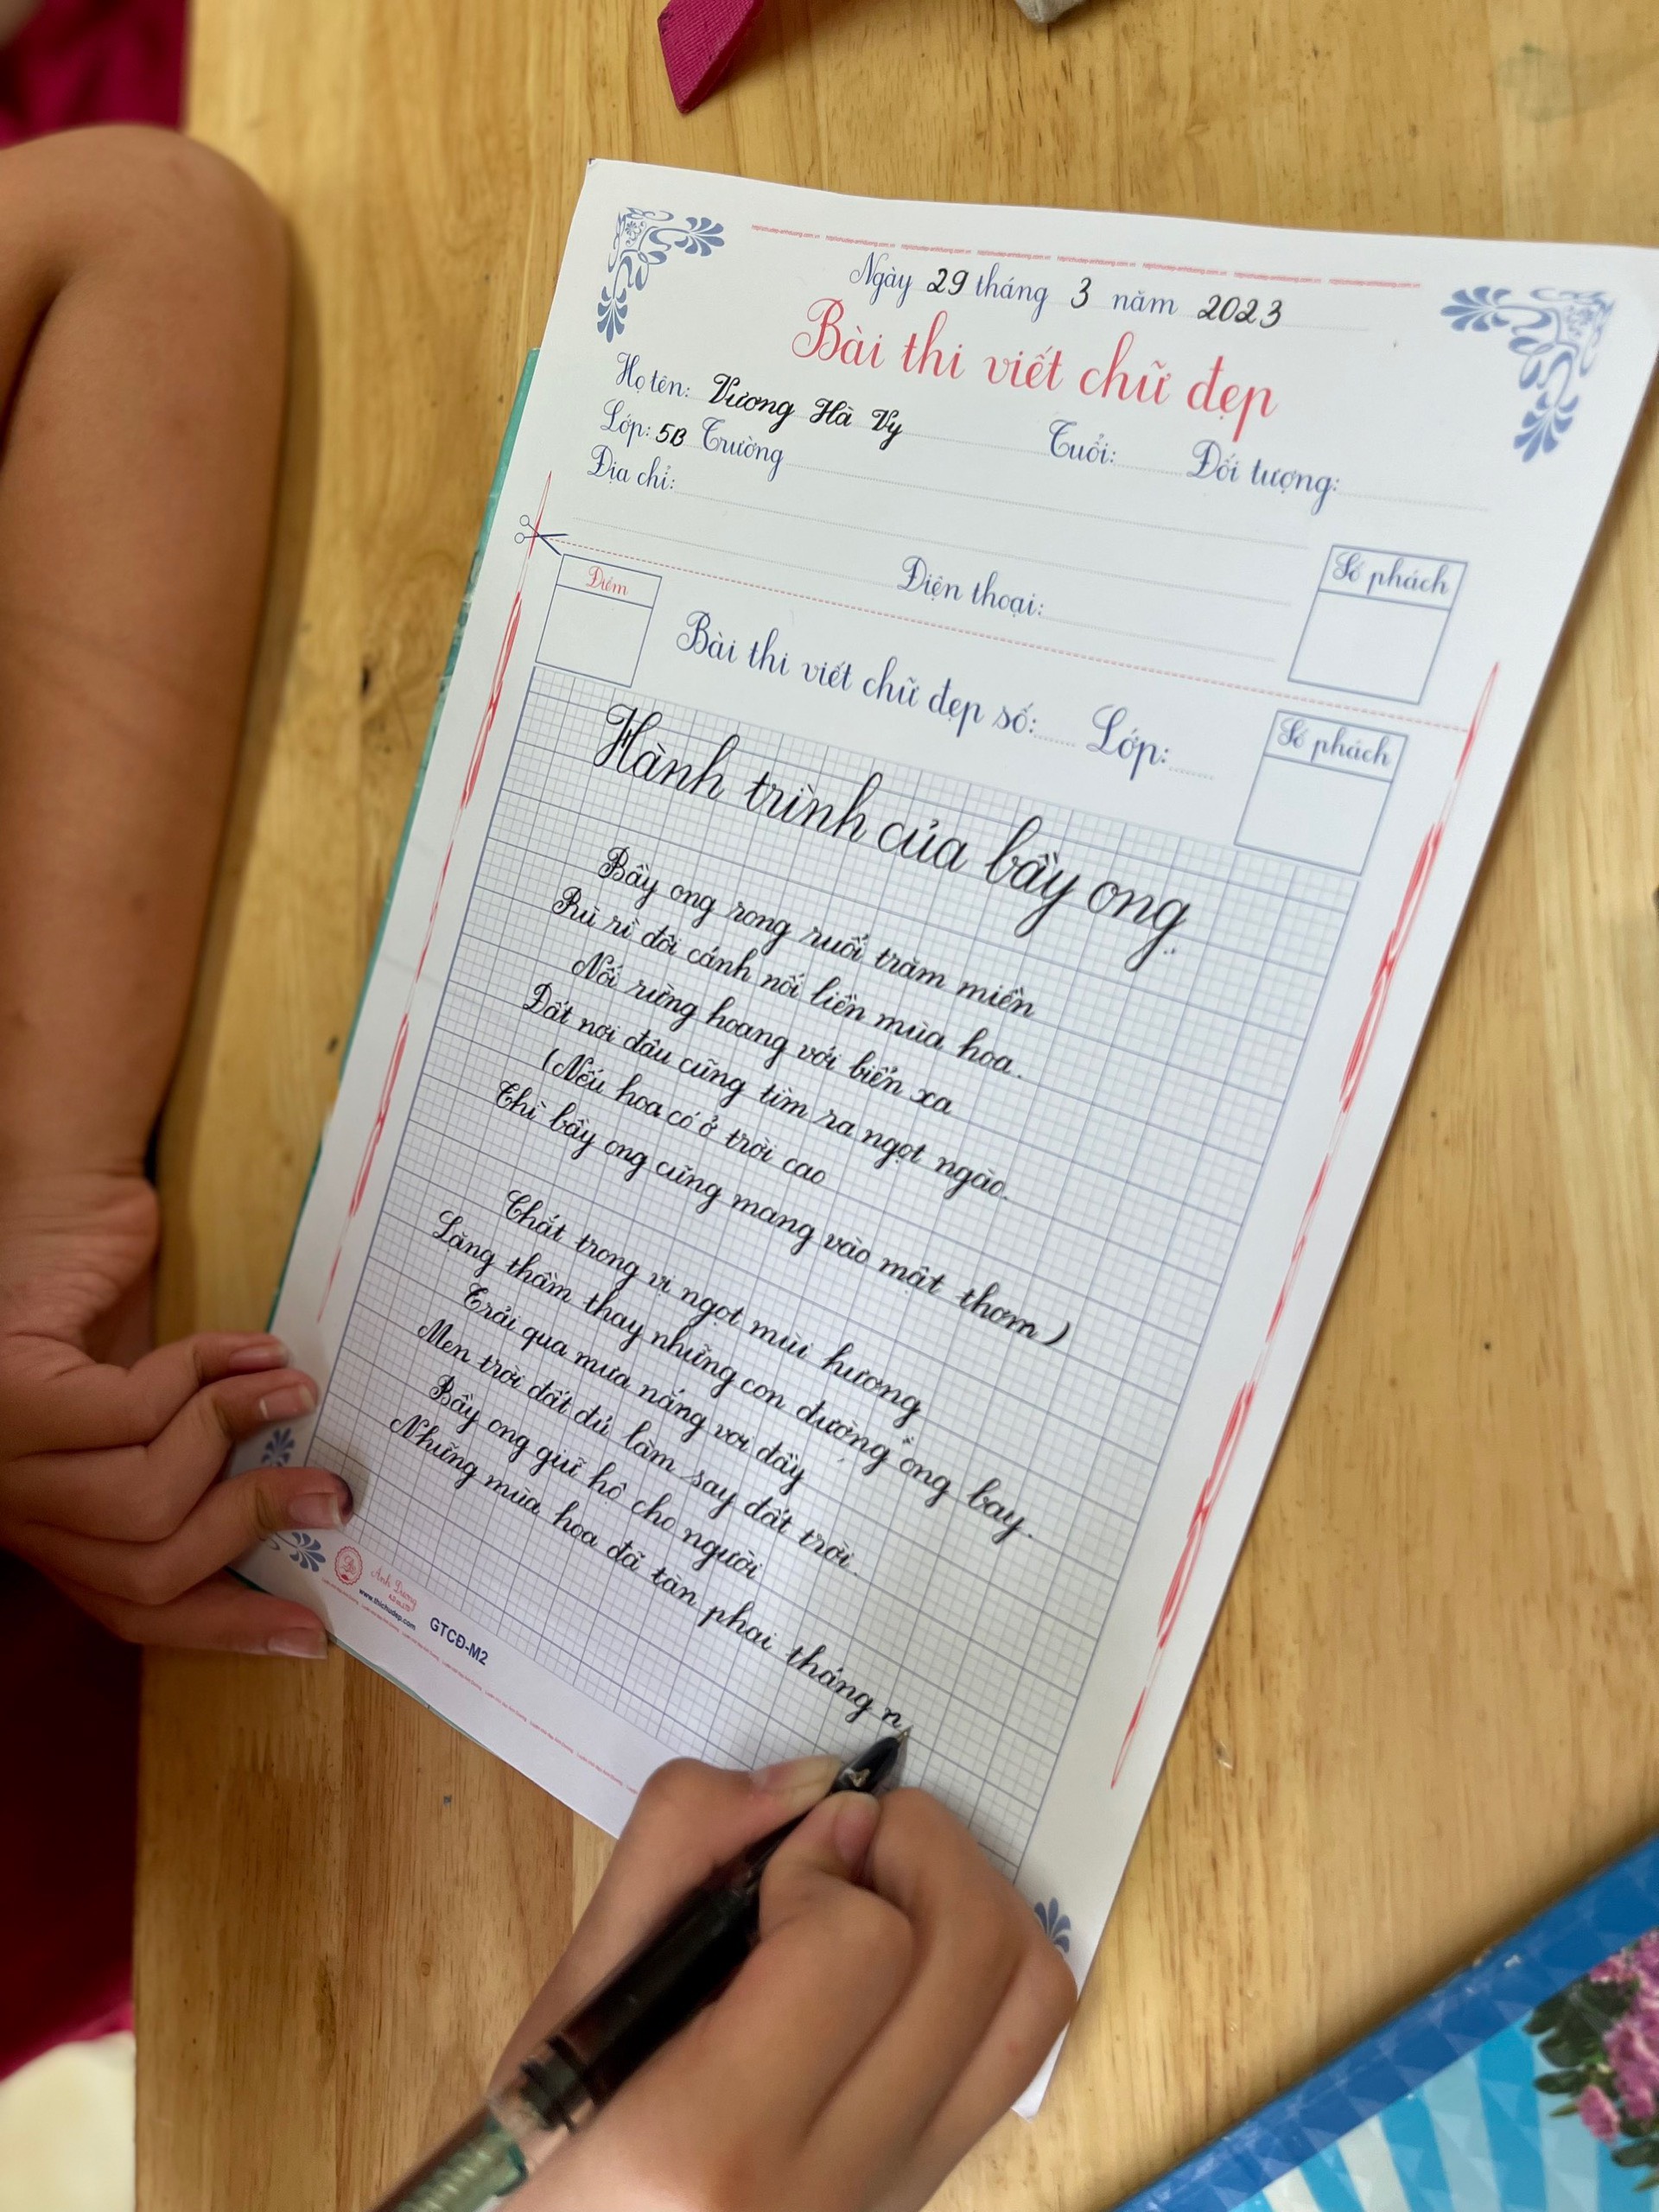 Ngày 29 tháng 3 năm 2023
Bài thi viết chữ đẹp
Họ tên: Vương Hà Vy Tuổi: Đối tượng:
Lớp: 5B Trường
Địa chỉ:
Điện thoại:
Số phách
Điểm
Bài thi viết chữ đẹp số: Lớp:
Số phách
Hành trình của bầy ong
Bầy ong rong ruổi trăm miền
Rù rì đôi cánh nối liền mùa hoa.
Nối rừng hoang với biển xa
Đất nơi đâu cũng tìm ra ngọt ngào.
(Nếu hoa có ở trời cao
Thì bầy ong cũng mang vào mật thơm)
Chắt trong vị ngọt mùi hương
Lặng thầm thay những con đường ong bay.
Trải qua mưa nắng vơi đầy
Men trời đất đủ làm say đất trời.
Bầy ong giữ hộ cho người
Những mùa hoa đã tàn phai tháng n
Ánh Dương
www.thichudep.com
GTCĐ-M2